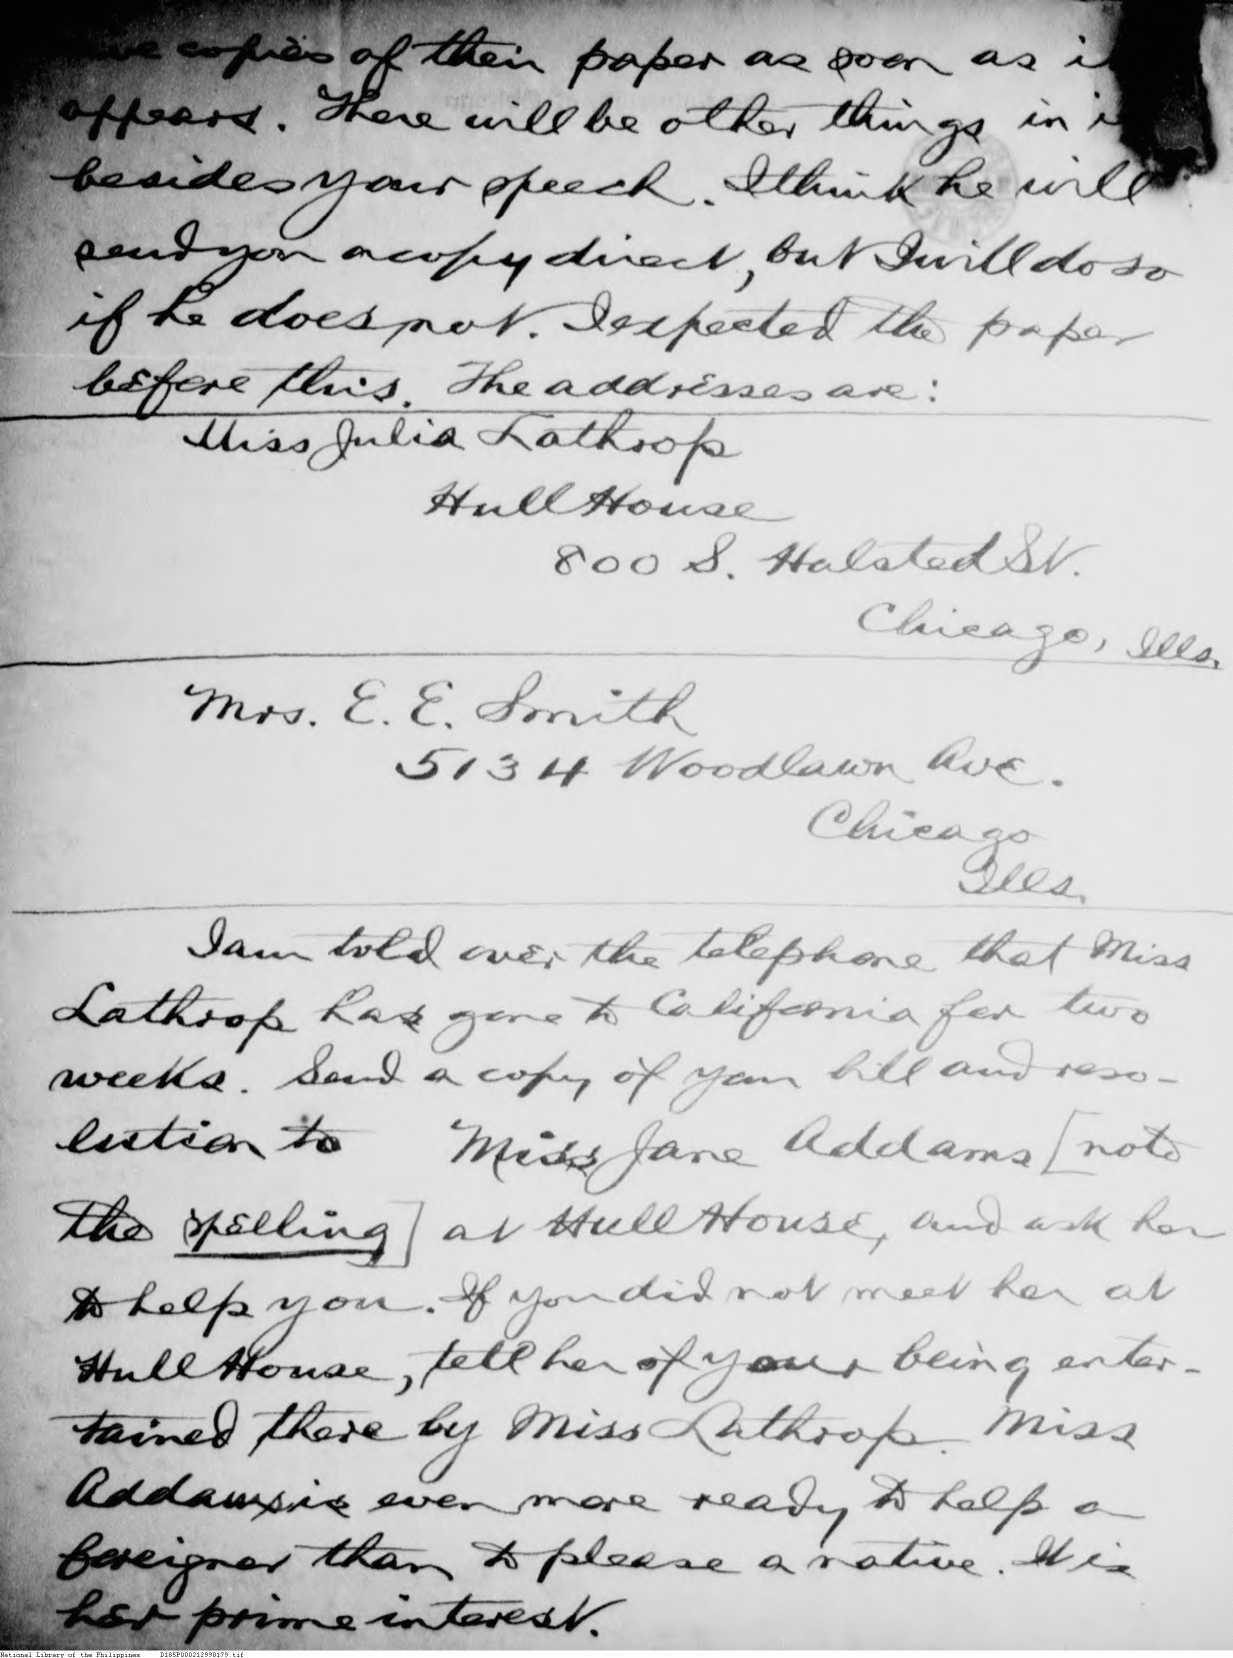 copies of their paper as soon as i
appears. There will be other things in i
besides your speech. I think he will
send you a copy direct, but I will do so
if he does not. I expected the paper
before this. The addresses are:
Miss Julia Lathrop
Hull House
800 S. Halsted St.
Chicago, Ills.
Mrs. E. E. Smith
5134 Woodlawn Ave.
Chicago
Ills.
I am told over the telephone that Miss
Lathrop has gone to California for two
weeks. Send a copy of your bill and reso-
lution to Miss Jane Addams [note
the spelling] at Hull House, and ask her
to help you. If you did not meet her at
Hull House, tell her of your being enter-
tained there by Miss Lathrop. Miss
Addams is even more ready to help a
foreigner than to please a native. It is
her prime interest.
National Library of the Philippines D185P000212990179.tif